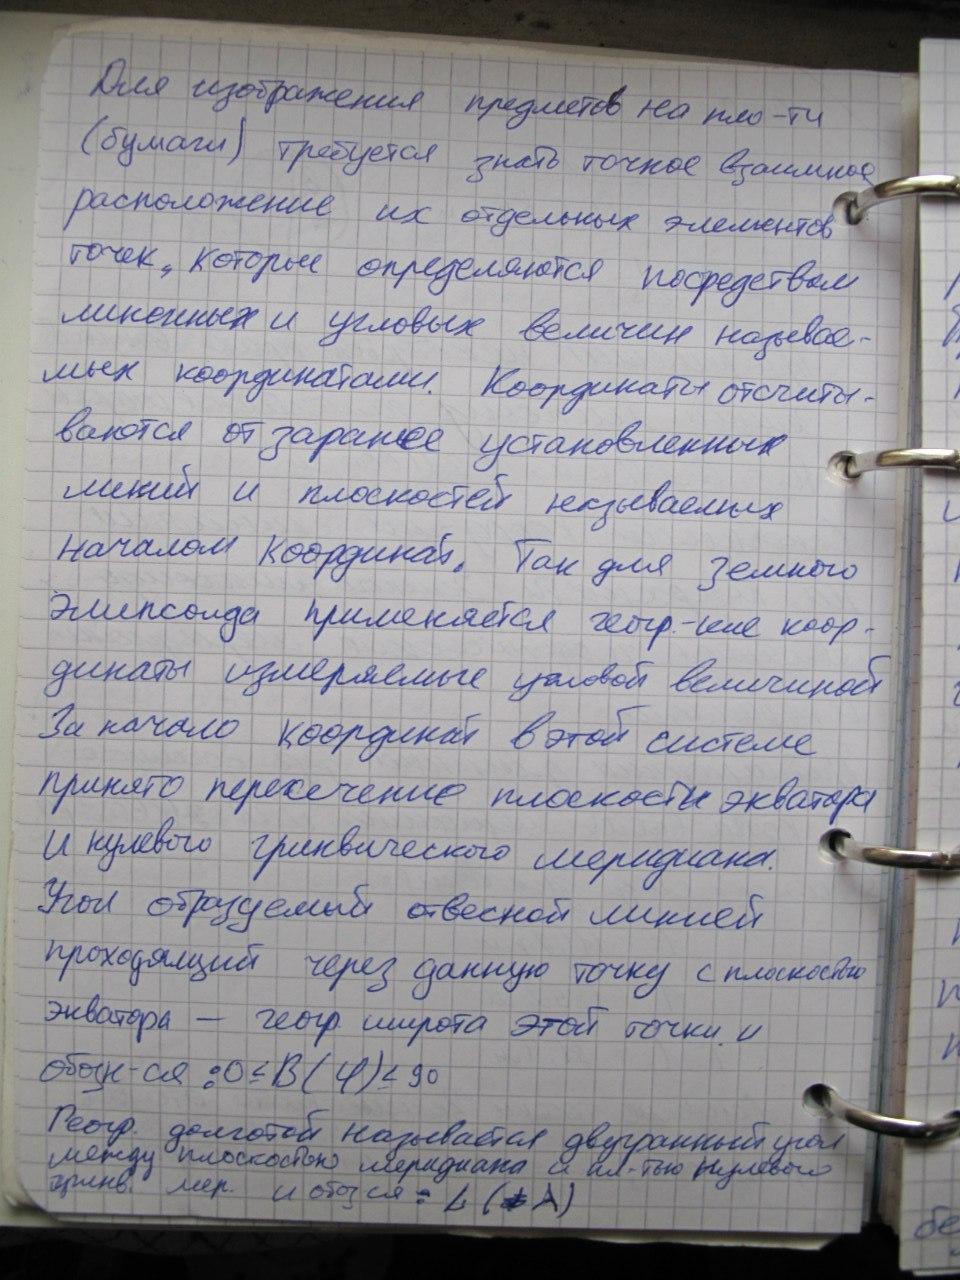 Для изображения предметов на пло-ти
(бумаги) требуется знать точное взаимное
расположение их отдельных элементов
точек, которые определяются посредством
линейных и угловых величин называе-
мых координатами. Координаты отсчиты-
ваются от заранее установленных
линий и плоскостей называемых
началом координат. Так для земного
элипсоида применяется геогр.-кие коор-
динаты измеряемые угловой величиной
За начало координат в этой системе
принято пересечение плоскости экватора
и нулевого гринвического меридиана.
Угол образуемый отвесной линией
проходящий через данную точку с плоскостью
экватора — геогр. широта этой точки. и
обозн-ся : 0 ≤ B (φ) ≤ 90
Геогр. долготой называется двугранный угол
между плоскостью меридиана и пл-тью нулевого
гринв. мер. и обоз ся : L (λ)